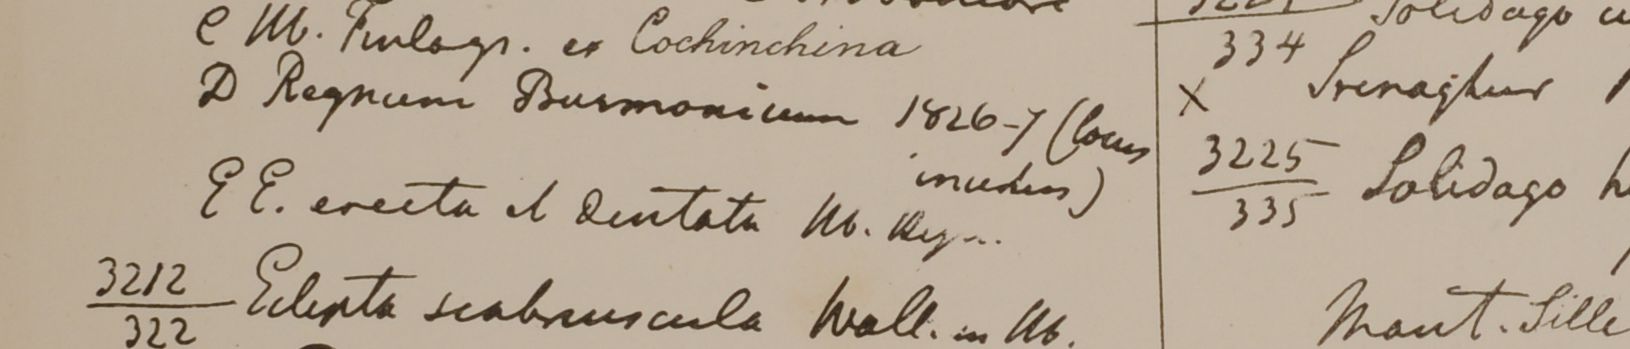 C Hb. Finlays. ex Cochinchina
D Regnum Burmanicum 1826-7 (locus
incertus)
E E. erecta et dentata Hb.
3212
322
Eclipta scabriuscula Wall. in Hb.
Solidago
334
× Srenaghur
3225
335
Solidago
Mont. Sille